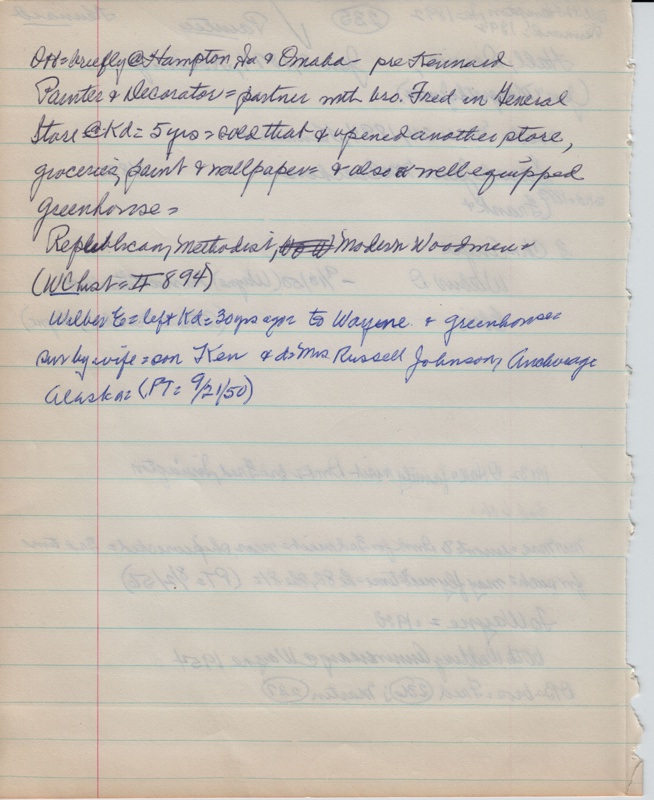 OH = briefly @ Hampton Ia & Omaha - pre Kennard
Painter & Decorator = partner with bro. Fred in General
Store @ Kd = 5 yrs = sold that & opened another store,
groceries, paint & wallpaper = & also a well equipped
greenhouse =
Republican, Methodist, Modern Woodmen =
(WC hist = II 894)
Wilber E = left Kd = 30 yrs ago to Wayne & greenhouse =
sur by wife = son Ken & d = Mrs. Russell Johnson, Anchorage
Alaska = (PT = 9/21/50)